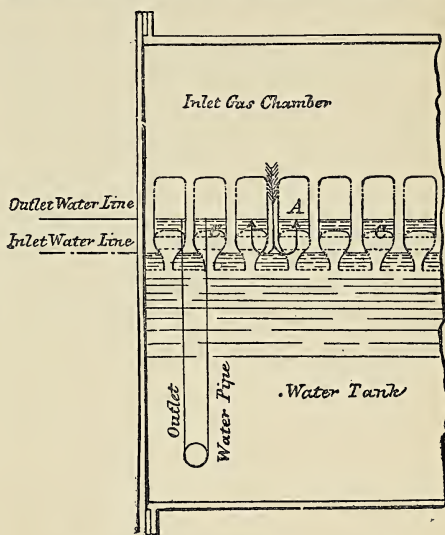 Inlet Gas Chamber
Outlet Water Line
A
Inlet Water Line
Outlet
Water Pipe
Water Tank